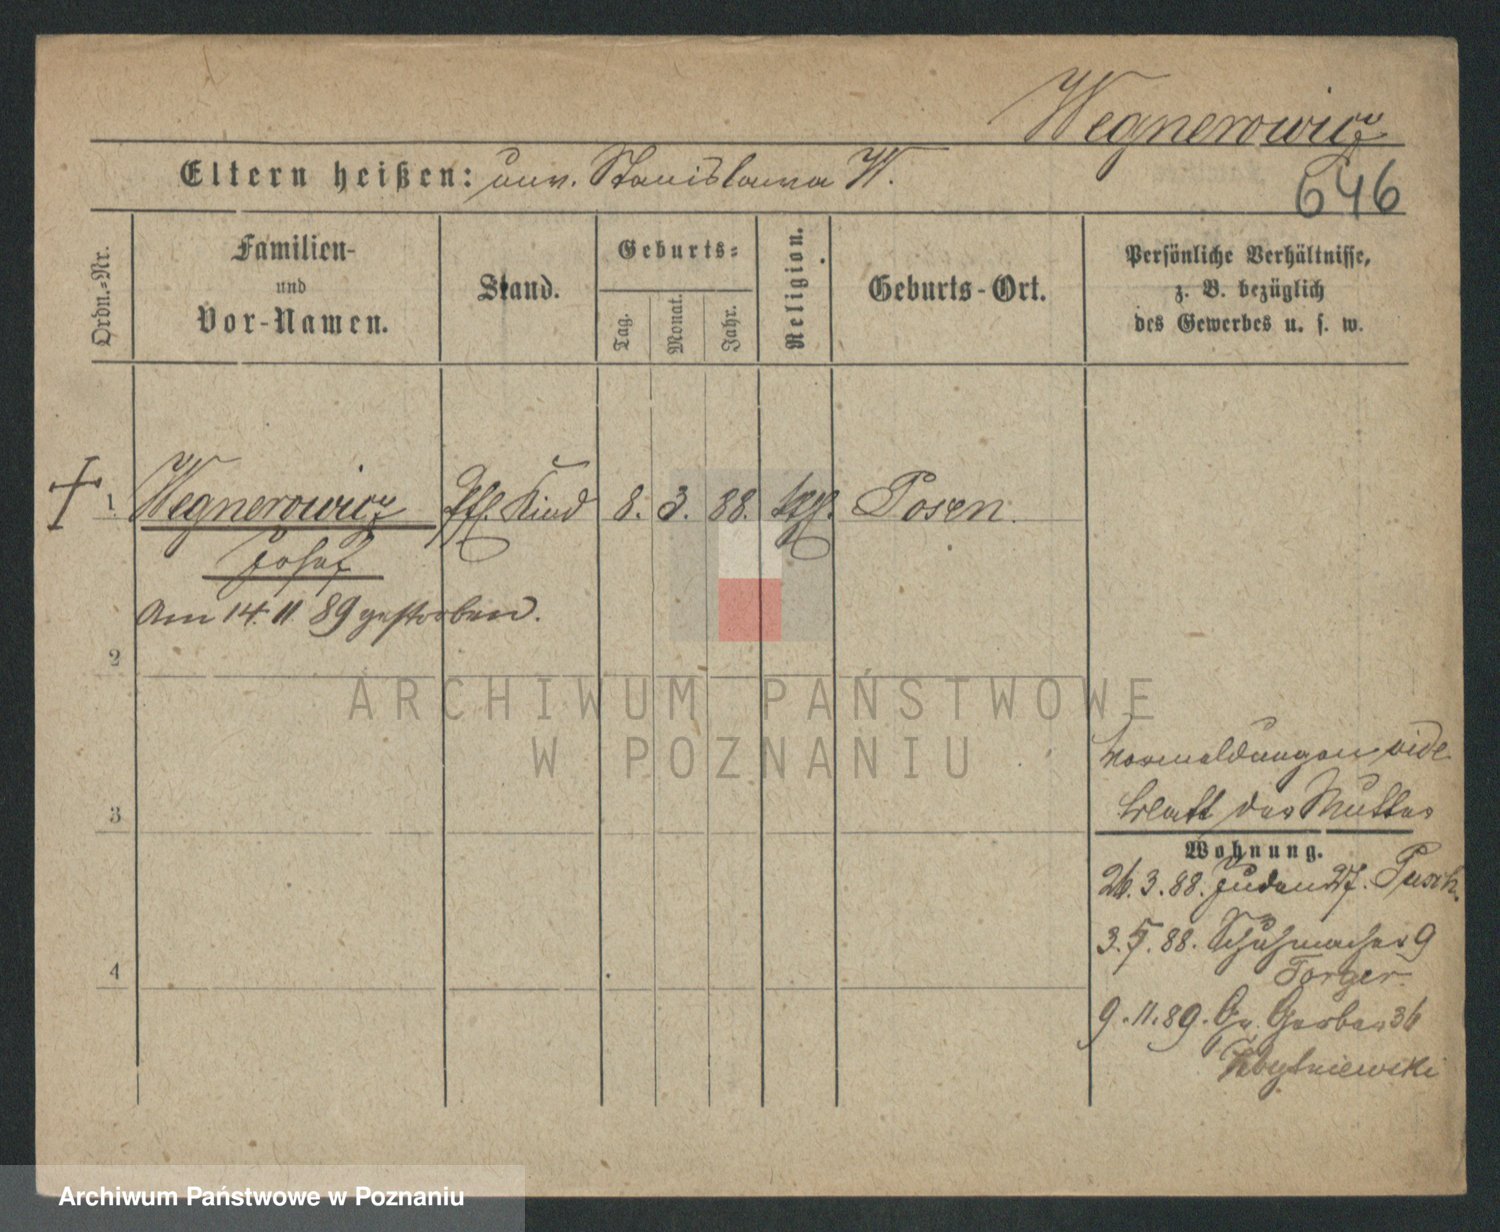 Wegnerowicz
Eltern heißen: unv. Stanislawa W.
646
Ordn.=Nr.
Familien-
und
Vor-Namen.
Stand.
Geburts=
Tag.
Monat.
Jahr.
Religion.
Geburts-Ort.
Persönliche Verhältnisse,
z. B. bezüglich
des Gewerbes u. s. w.
1 Wegnerowicz Pfl. Kind 8. 3. 88. kath. Posen.
Josef
am 14. 11 89 gestorben.
2
ARCHIWUM PAŃSTWOWE
W POZNANIU
Vormeldungen vide
Blatt der Mutter
3
Wohnung.
26. 3. 88. Juden 27.
3. 5. 88. Schuhmacher 9
4
Torger
9. 11. 89. Gr. Gerber 36
Archiwum Państwowe w Poznaniu